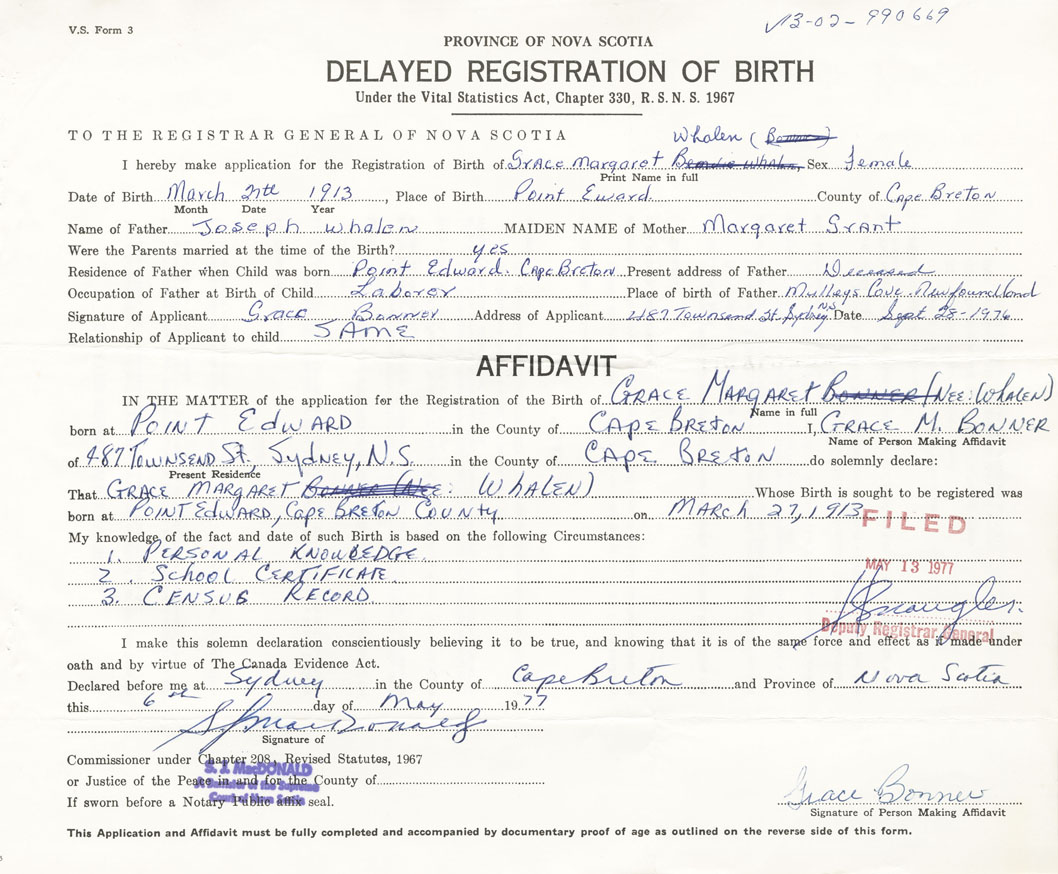 V.S. Form 3
13-02-990669
PROVINCE OF NOVA SCOTIA
DELAYED REGISTRATION OF BIRTH
Under the Vital Statistics Act, Chapter 330, R.S.N.S. 1967
TO THE REGISTRAR GENERAL OF NOVA SCOTIA
Whalen (Bonner)
I hereby make application for the Registration of Birth of Grace Margaret Sex Female
Print Name in full
Date of Birth March 27th 1913, Place of Birth Point Eward. County of Cape Breton
Month Date Year
Name of Father Joseph Whalen MAIDEN NAME of Mother Margaret Grant
Were the Parents married at the time of the Birth? yes
Residence of Father when Child was born Point Edward. Cape Breton Present address of Father Deceased
Occupation of Father at Birth of Child Laborer Place of birth of Father Mulleys Cove. Newfoundland
Signature of Applicant Grace Bonner Address of Applicant 487 Townsend St. Sydney NS Date Sept 28-1976
Relationship of Applicant to child SAME
AFFIDAVIT
IN THE MATTER of the application for the Registration of the Birth of GRACE MARGARET BONNER (NEE: WHALEN)
Name in full
born at POINT EDWARD in the County of CAPE BRETON I, GRACE M. BONNER
Name of Person Making Affidavit
of 487 TOWNSEND ST., SYDNEY, N.S. in the County of CAPE BRETON do solemnly declare:
Present Residence
That GRACE MARGARET BONNER (NEE: WHALEN) Whose Birth is sought to be registered was
born at POINT EDWARD, CAPE BRETON COUNTY on MARCH 27, 1913
FILED
My knowledge of the fact and date of such Birth is based on the following Circumstances:
1. PERSONAL KNOWLEDGE.
2. SCHOOL CERTIFICATE.
MAY 13 1977
3. CENSUS RECORD.
Deputy Registrar General
I make this solemn declaration conscientiously believing it to be true, and knowing that it is of the same force and effect as if made under
oath and by virtue of The Canada Evidence Act.
Declared before me at Sydney in the County of Cape Breton and Province of Nova Scotia
this 6th day of May 1977
S J MacDonald
Signature of
Commissioner under Chapter 208, Revised Statutes, 1967
S. J. MacDONALD
or Justice of the Peace in and for the County of
A Barrister of the Supreme
Court of Nova Scotia
If sworn before a Notary Public affix seal.
Grace Bonner
Signature of Person Making Affidavit
This Application and Affidavit must be fully completed and accompanied by documentary proof of age as outlined on the reverse side of this form.